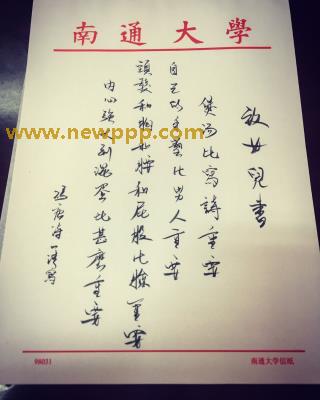 南通大學
致女兒書
煲湯比寫詩重要
自己的手藝比男人重要
頭髮和胸和腰和屁股比臉重要
内心強大到混蛋比甚麼重要
馮唐诗
www.newppp.com
98031
南通大学信纸